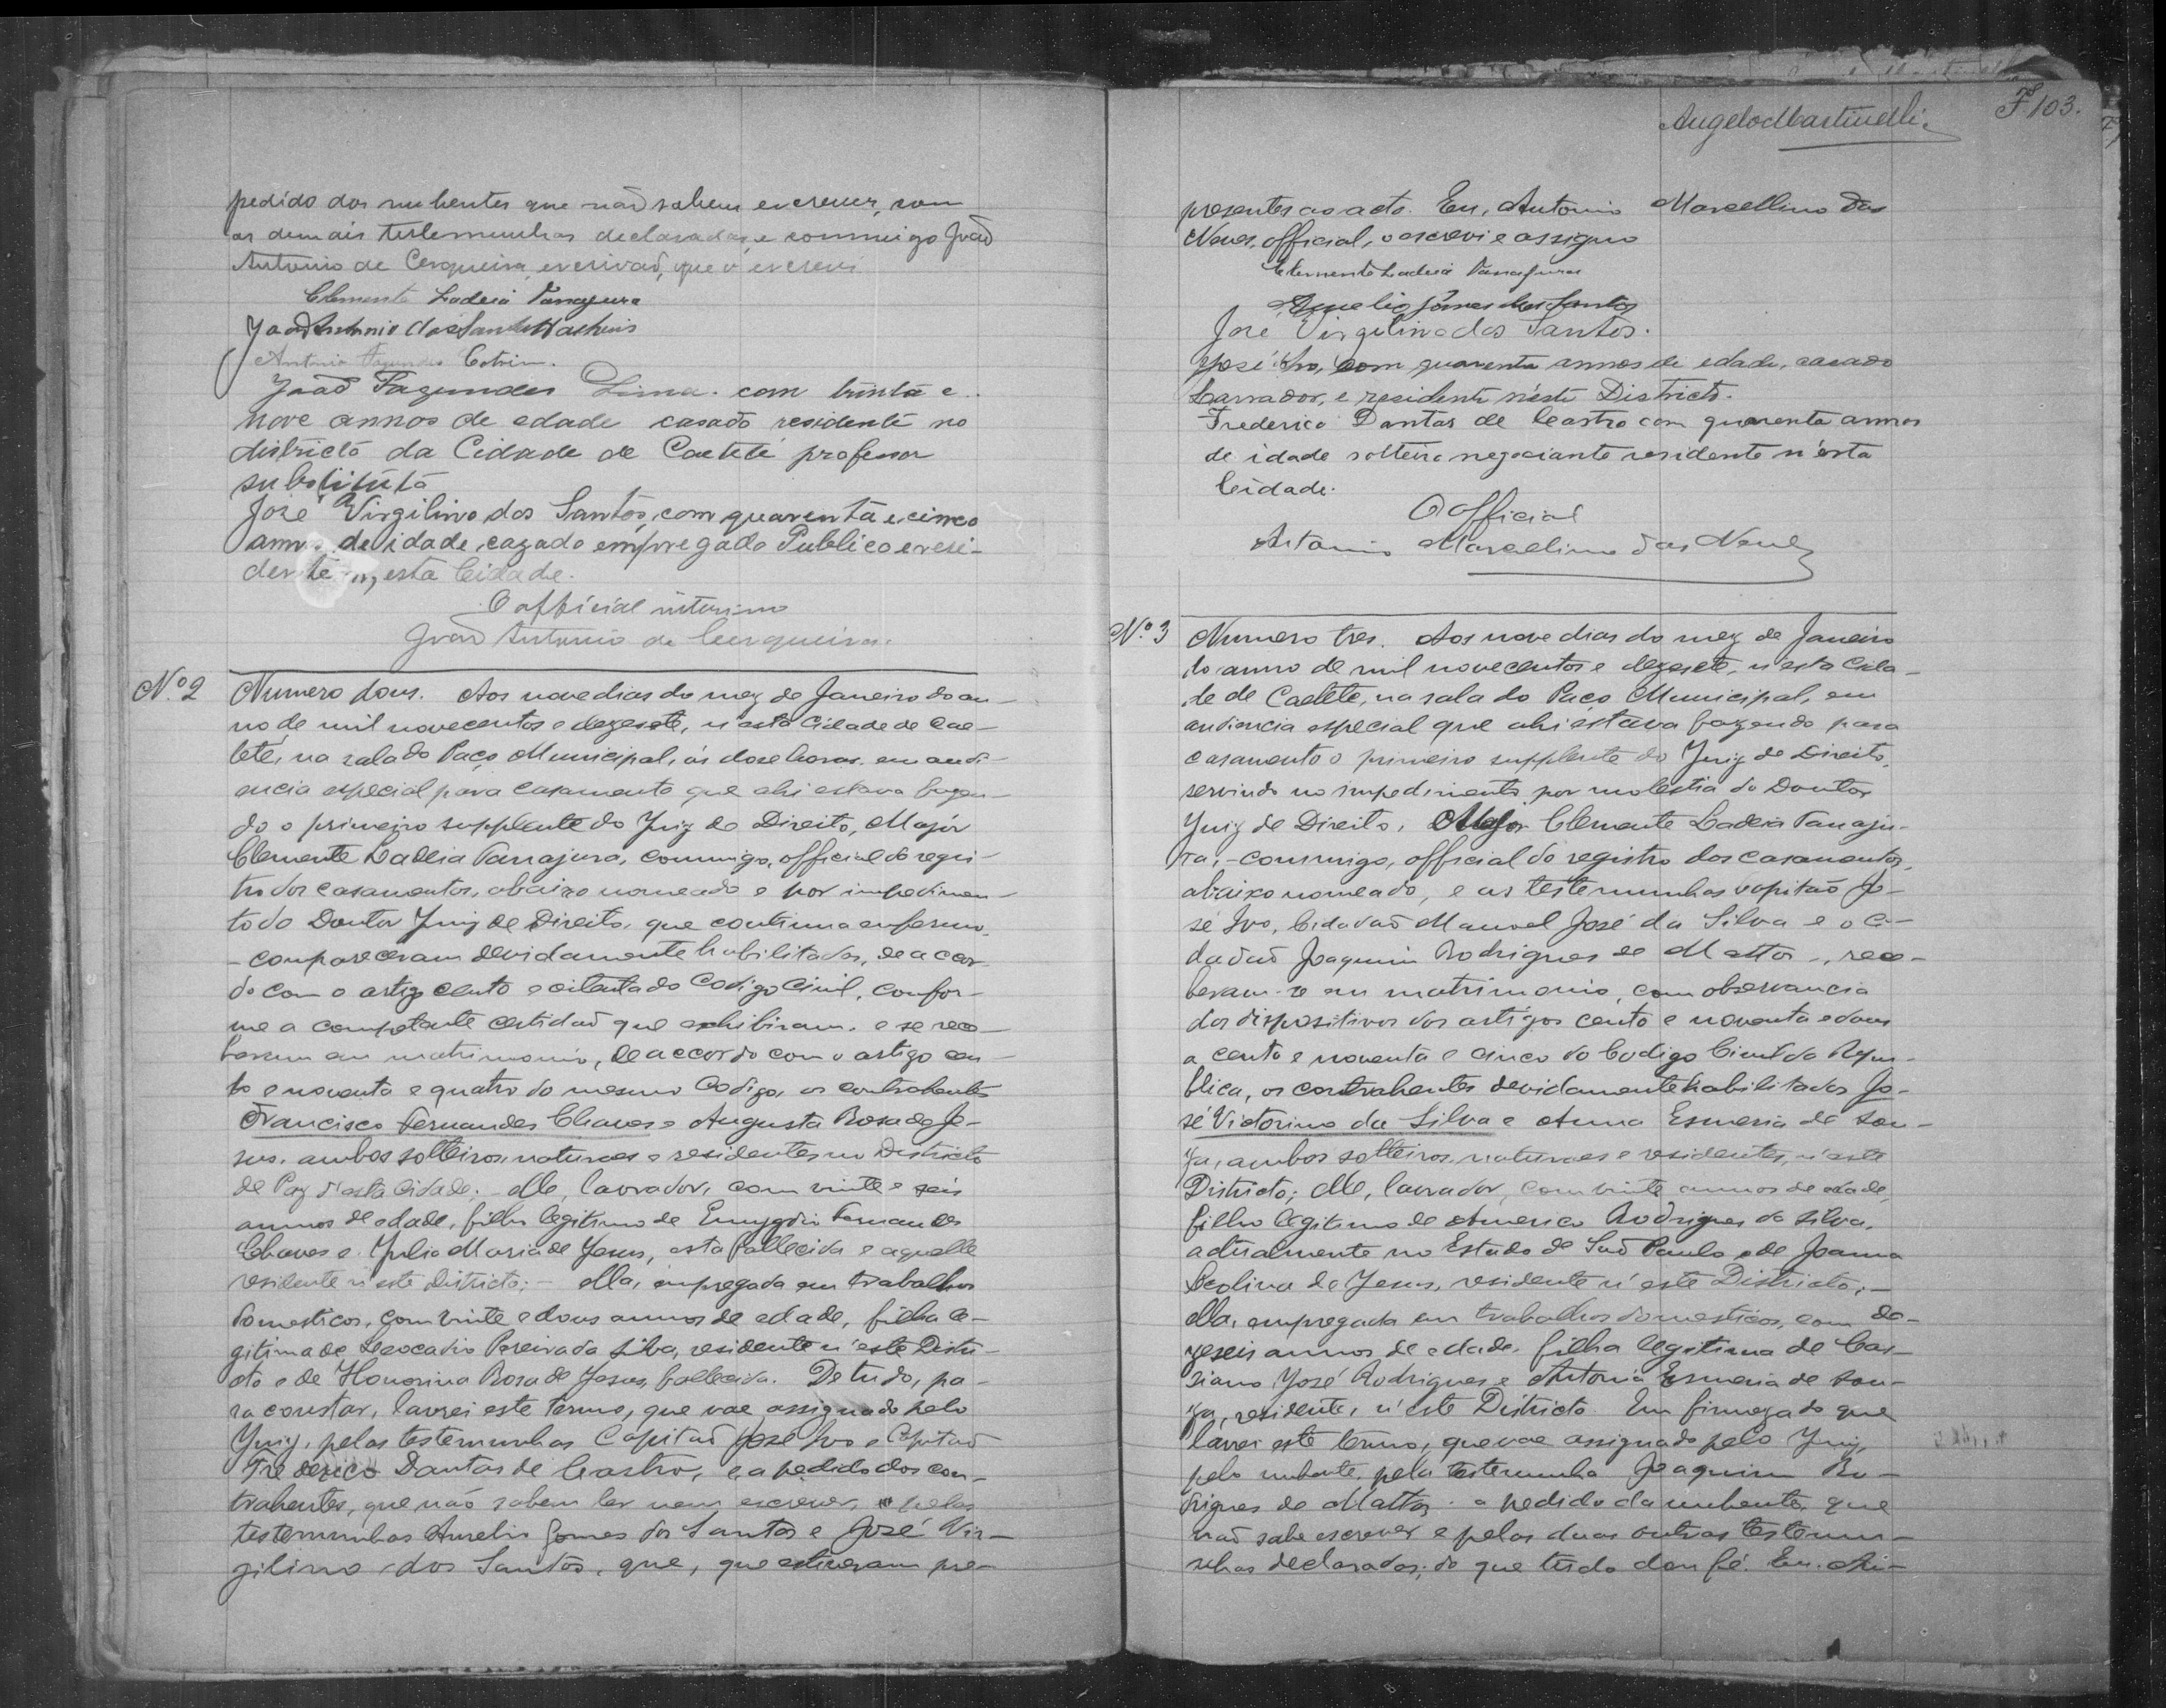 pedido dos nubentes que não sabem escrever, com
as demais testemunhas declaradas, e commigo João
Antonio de Cerqueira, escrivaõ, que o escrevi
Clemente Ladeia Tanajura
João Antonio dos Santos
Antonio Fagundes Cotrim.
João Fagundes Lima. com trinta e
nove annos de edade casado residente no
districto da Cidade de Caeteté professor
substituto
José Virgilino dos Santos, com quarenta e cinco
annos de idade, cazado empregado Publico e resi-
dente n'esta Cidade.
O official interino
João Antonio de Cerqueira.
Nº 2 Numero dous. Aos nove dias do mez de Janeiro do an-
no de mil novecentos e dezesete, n'esta Cidade de Cae-
teté, na sala do Paço Municipal, ás dose horas. em audi-
encia especial para casamento que ahi estava fazen-
do o primeiro supplente do Juiz de Direito, Major
Clemente Ladeia Tanajura, commigo, official do regis-
tro dos casamentos, abaixo nomeado e por impedimen-
to do Doutor Juiz de Direito, que continua enfermo,
- compareceram devidamente habilitados, de accor-
do com o artigo cento e oitenta do Codigo Civil, confor-
me a competente certidaõ que exhibiram. e se rece-
beram em matrimonio, de accordo com o artigo cen-
to e noventa e quatro do mesmo Codigo, os contrahentes
Francisco Fernandes Chaves e Augusta Rosa de Je-
sus. ambos solteiros, naturaes e residentes no Districto
de Paz d'esta Cidade; - elle, lavrador, com vinte e seis
annos de edade, filho legitimo de Emygdio Fernandes
Chaves e Julia Maria de Jesus, esta fallecida e aquelle
residente n'este Districto; - ella, empregada em trabalhos
domesticos, com vinte e dous annos de edade, filha le-
gitima de Leocadio Pereira da Silva, residente n'este Distri-
cto e de Honorina Rosa de Jesus, fallecida. De tudo, pa-
ra constar, lavrei este termo, que vae assignado pelo
Juiz, pelas testemunhas Capitaõ José Ivo e Capitaõ
Frederico Dantas de Castro, e a pedido dos con-
trahentes, que não sabem ler nem escrever, pelas
testemunhas Aurelio Gomes dos Santos e José Vir-
gilino dos Santos, que, que estiveram pre-
Angelo Martinelli
Fs 103.
presentes ao acto. Eu, Antonio Marcellino das
Neves, official, o escrevi e assigno
Clemente Ladeia Tanajura
Aurelio Gomes dos Santos
José Virgilino dos Santos.
José Ivo, com quarenta annos de edade, casado
Lavrador, e residente n'este Districto.
Frederico Dantas de Castro com quarenta annos
de idade solteiro negociante residente n'esta
Cidade.
O official
Antonio Marcellino das Neves
Nº 3 Numero tres. Aos nove dias do mez de Janeiro
do anno de mil novecentos e dezesete, n'esta Cida-
de de Caeteté, na sala do Paço Municipal, em
audiencia especial que ahi estava fazendo para
casamento o primeiro supplente do Juiz de Direito,
servindo no impedimento por molestia do Doutor
Juiz de Direito, Major Clemente Ladeia Tanaju-
ra, - commigo, official do registro dos casamentos,
abaixo nomeado, e as testemunhas capitaõ Jo-
sé Ivo, Cidadaõ Manoel José da Silva e o Ci-
dadaõ Joaquim Rodrigues de Mattos -, rece-
beram-se em matrimonio, com observancia
dos dispositivos dos artigos cento e noventa e dous
a cento e noventa e cinco do Codigo Civil da Repu-
blica, os contrahentes devidamente habilitados Jo-
sé Victorino da Silva e Anna Esmeria de Sou-
za, ambos solteiros, naturaes e residentes, n'este
Districto; elle, lavrador, com vinte annos de edade,
filho legitimo de Americo Rodrigues da Silva,
actualmente no Estado de Saõ Paulo e de Joanna
Leolina de Jesus, residente n'este Districto; -
ella, empregada em trabalhos domesticos, com de-
zeseis annos de edade, filha legitima de Cas-
siano José Rodrigues e Antonia Esmeria de Sou-
za, residente, n'este Districto Em firmeza do que
lavrei este termo, que vae assignado pelo Juiz,
pelo nubente, pela testemunha Joaquim Ro-
drigues de Mattos a pedido da nubente, que
naõ sabe escrever e pelas duas outras testemu-
nhas declaradas; do que tudo dou fé. Eu. An-